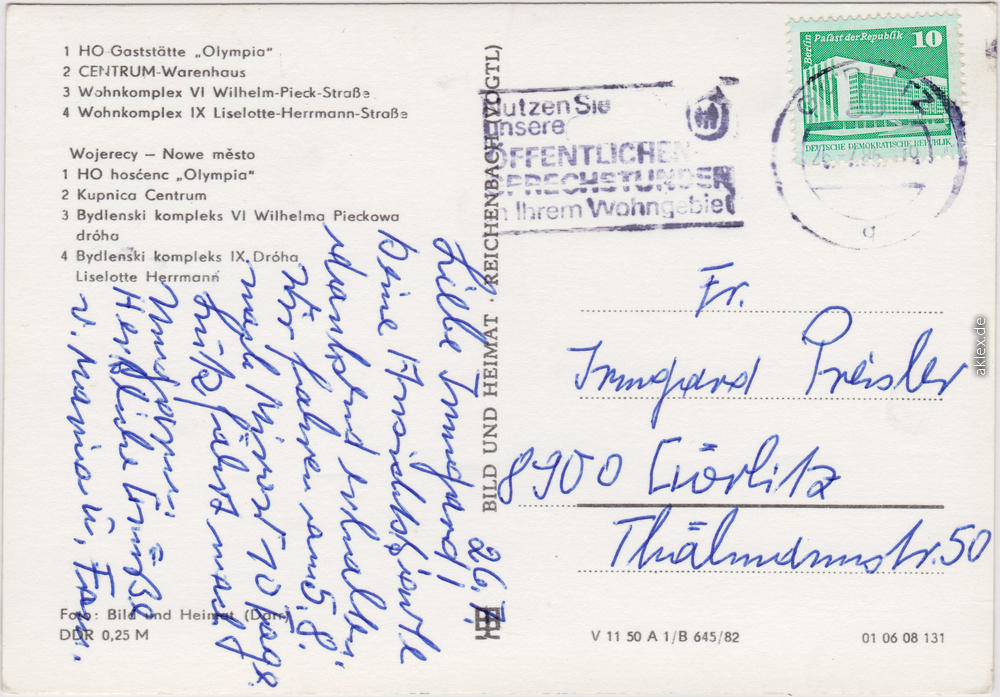 1 HO Gaststätte „Olympia“
2 CENTRUM-Warenhaus
3 Wohnkomplex VI Wilhelm-Pieck-Straße
4 Wohnkomplex IX Liselotte-Herrmann-Straße
Wojerecy – Nowe město
1 HO hosćenc „Olympia“
2 Kupnica Centrum
3 Bydlenski kompleks VI Wilhelma Pieckowa
dróha
4 Bydlenski kompleks IX Dróha
Liselotte Herrmann
26. 7.
Liebe Irmgard!
Deine Ansichtskarte
dankend erhalten.
Wir fahren am 5. 8.
nach 10 Tage.
fährt nach
Herzliche Grüße
v. Maria u. Fam.
Foto: Bild und Heimat (Darr)
DDR 0,25 M
BILD UND HEIMAT · REICHENBACH (VOGTL)
Nutzen Sie
unsere
ÖFFENTLICHEN
SPRECHSTUNDEN
in Ihrem Wohngebiet
Berlin Palast der Republik 10
DEUTSCHE DEMOKRATISCHE REPUBLIK
q
Fr.
Irmgard Preisler
8900 Görlitz
Thälmannstr. 50
V 11 50 A 1/B 645/82
01 06 08 131
aklex.de